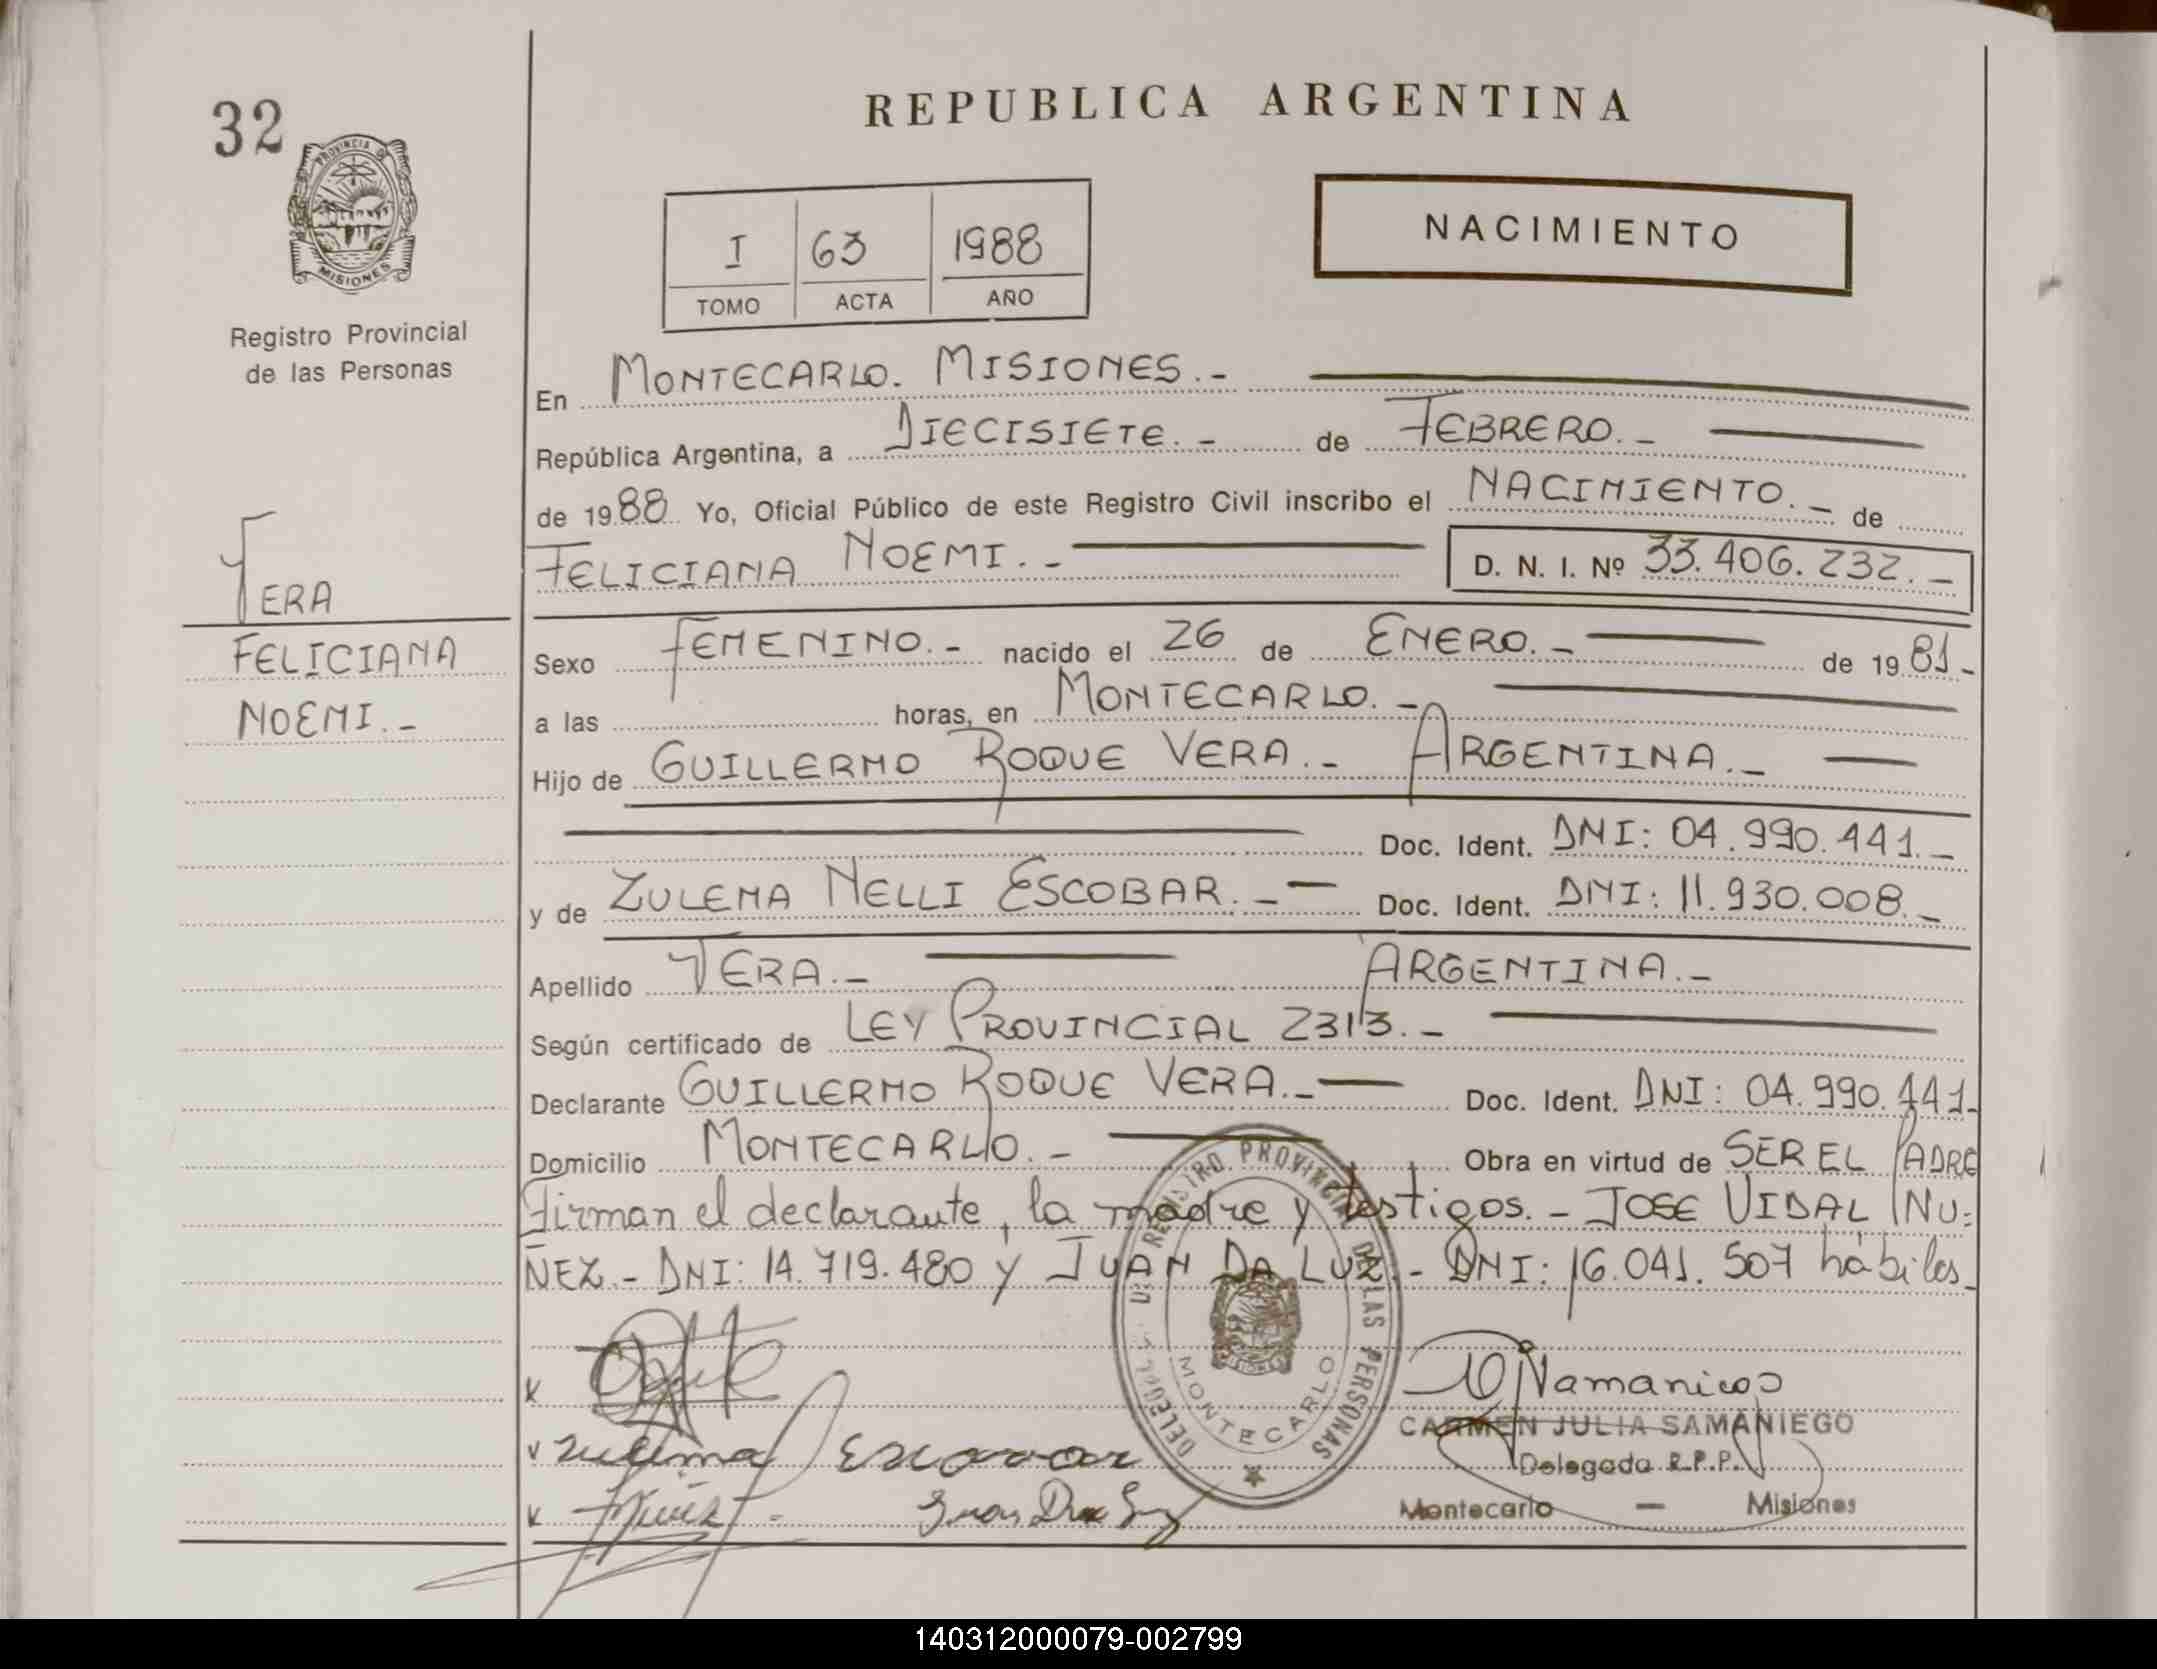 32
REPUBLICA ARGENTINA
PROVINCIA DE
MISIONES
NACIMIENTO
I 63 1988
TOMO ACTA AÑO
Registro Provincial
de las Personas
En MONTECARLO. MISIONES.-
República Argentina, a DIECISIETE.- de FEBRERO.-
de 1988 Yo, Oficial Público de este Registro Civil inscribo el NACIMIENTO.- de
FELICIANA NOEMI.- D. N. I. Nº 33.406.232.-
VERA
FELICIANA
NOEMI.-
Sexo FEMENINO.- nacido el 26 de ENERO.- de 1981-
a las horas, en MONTECARLO.-
Hijo de GUILLERMO ROQUE VERA.- ARGENTINA.-
Doc. Ident. DNI: 04.990.441.-
y de ZULEMA NELLI ESCOBAR.- Doc. Ident. DNI: 11.930.008.-
Apellido VERA.- ARGENTINA.-
Según certificado de LEY PROVINCIAL 2313.-
Declarante GUILLERMO ROQUE VERA.- Doc. Ident. DNI: 04.990.441-
Domicilio MONTECARLO.- Obra en virtud de SER EL PADRE
Firman el declarante, la madre y testigos.- JOSE VIDAL NU-
ÑEZ.- DNI: 14.719.480 y JUAN DA LUZ.- DNI: 16.041.507 hábiles-
REGISTRO PROVINCIAL DE LAS PERSONAS
MONTECARLO
CARMEN JULIA SAMANIEGO
Delegada R.P.P.
Montecarlo - Misiones
140312000079-002799